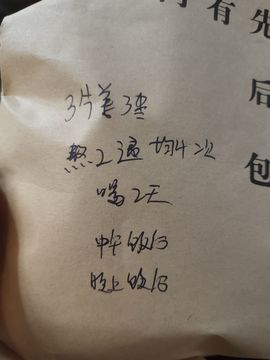 有先
后
包
3片姜3枣
熬2遍 均4次
喝2天
中午饭后
晚上饭后